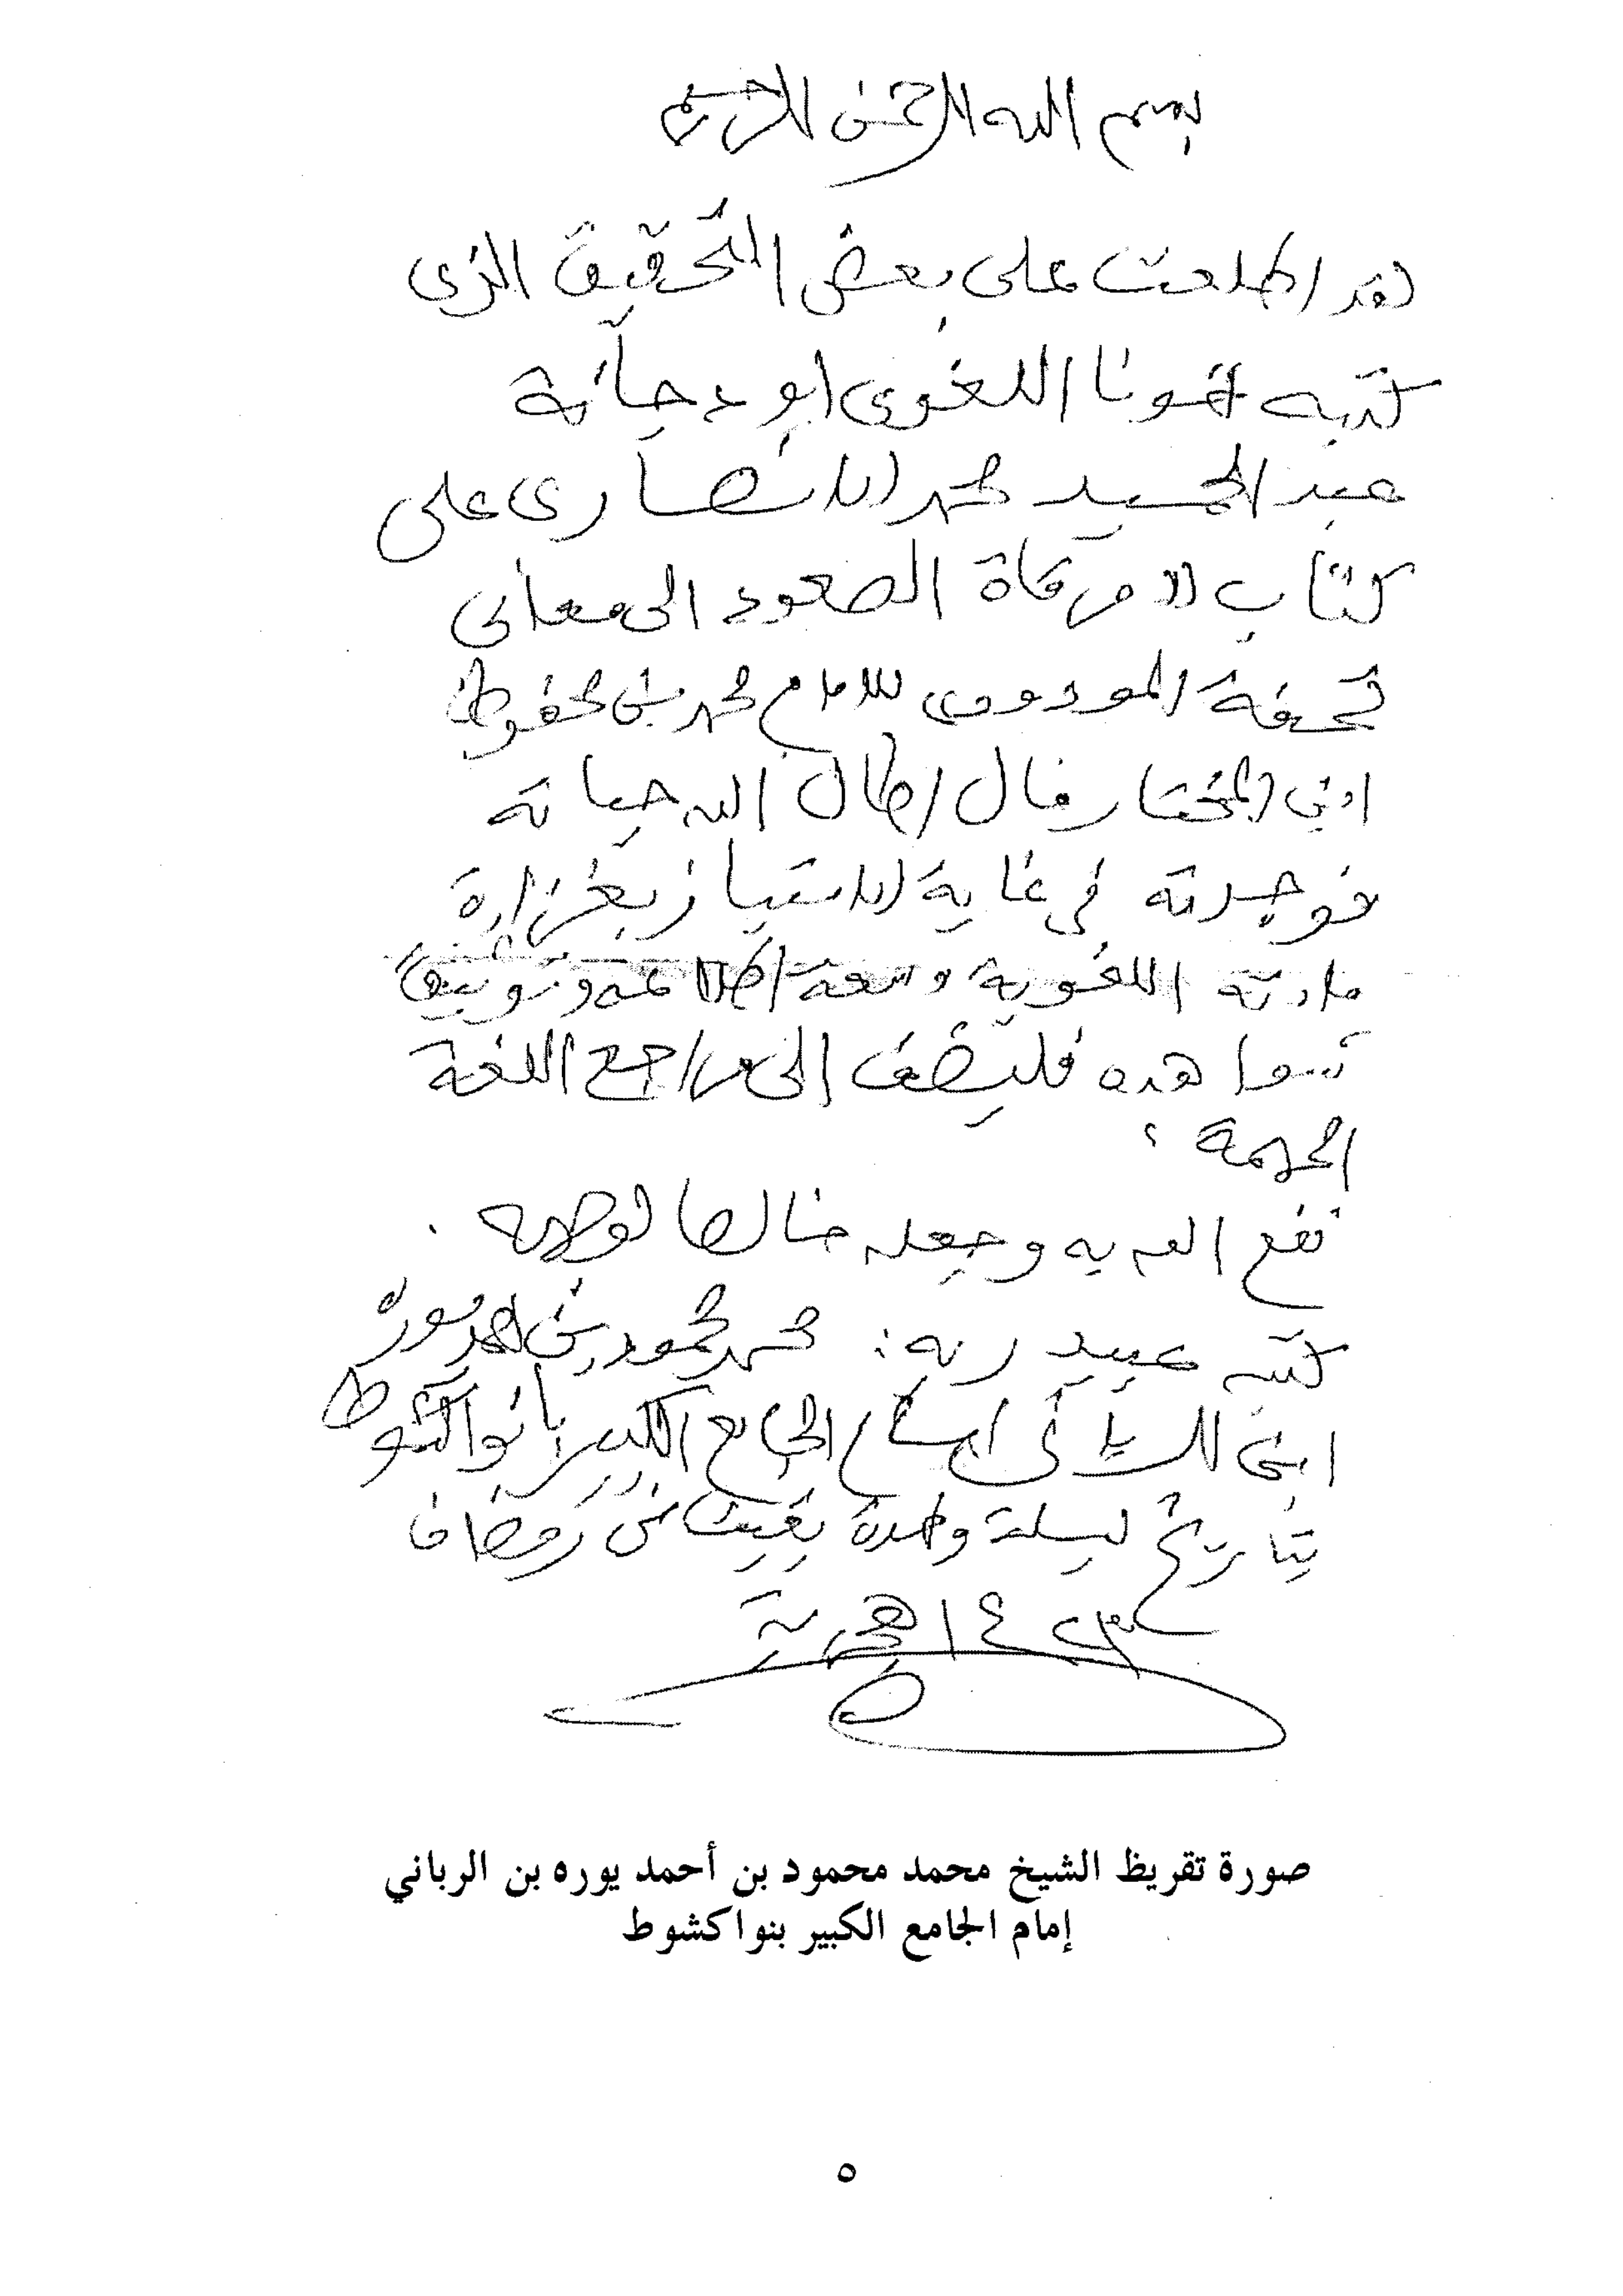 بسم الله الرحمن الرحيم
لقد اطلعت على بعض التحقيق الذي
كتبه اخونا اللغوي ابو دجانة
عبد المجيد محمد الانصاري على
كتاب "مرقاة الصعود الى معاني
تحفة المودود للامام محمد بن محفوظ
ابن المختار فال اطال الله حياته
فوجدته في غاية الامتياز بغزارة
مادته اللغوية وسعة اطلاعه وتوثيق
شواهده فليضف الى مراجع اللغة
المهمة ؛
نفع الله به وجعله خالصا لوجهه .
كتبه عبيد ربه: محمد محمود بن احمد يوره
ابن الرباني امام الجامع الكبير بانواكشوط
بتاريخ ليلة واحدة بقيت من رمضان
هجرية
صورة تقريظ الشيخ محمد محمود بن أحمد يوره بن الرباني
إمام الجامع الكبير بنواكشوط
٥